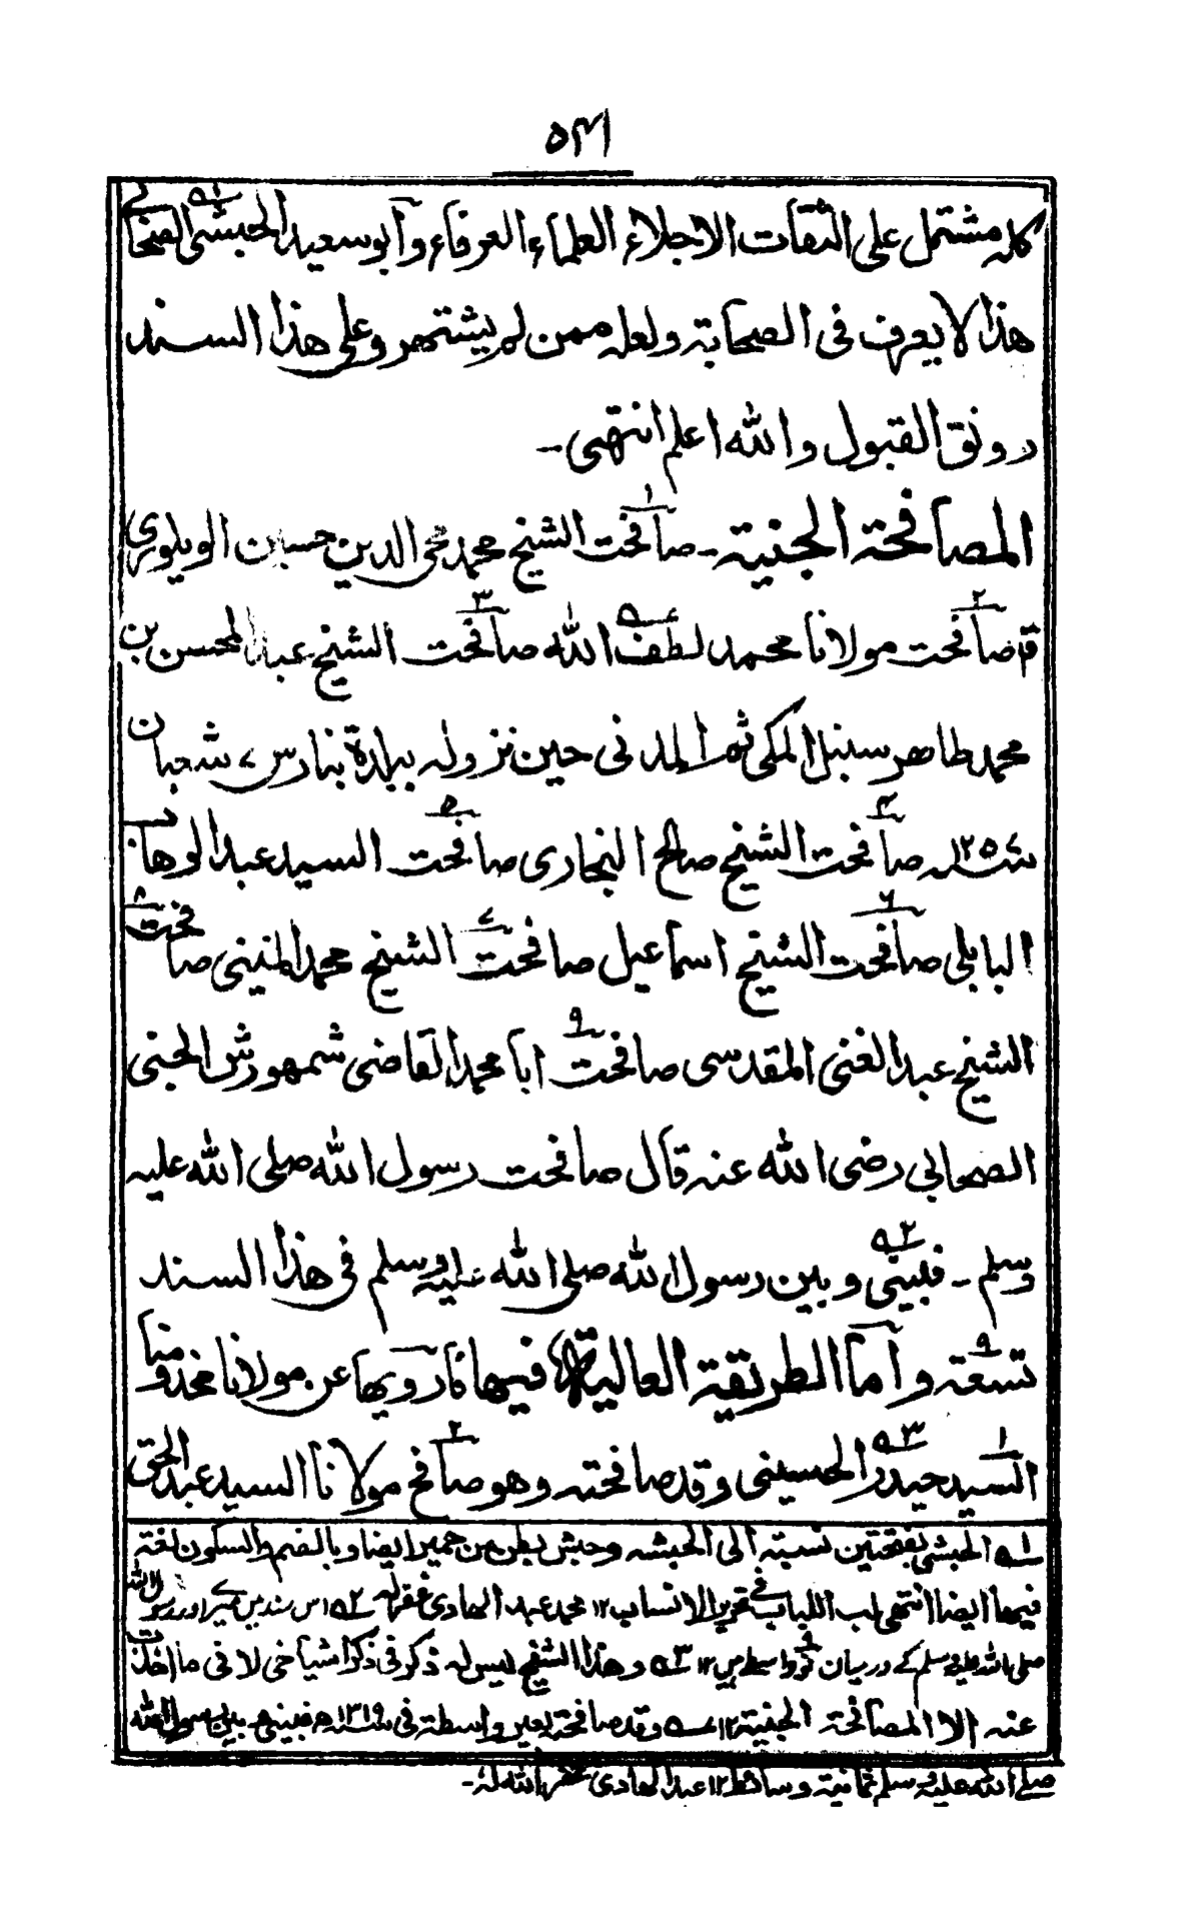 ۵۴۱
كله مشتمل على الثقات الاجلاء العلماء العرفاء وابو سعيد الحبشى الصحابى
هذا لا يعرف فى الصحابة ولعله ممن لم يشتهر وعلى هذا السند
رونق القبول والله اعلم انتهى۔
المصافحة الجنية۔ صافحت الشيخ محمد محى الدين حسين الويلورى
قد صافحت مولانا محمد لطف الله صافحت الشيخ عبد المحسن بن
محمد طاهر سنبل المكى ثم المدنى حين نزوله ببلدة بنارس ۷ شعبان
سنه ۱۲۵۷ صافحت الشيخ صالح البخارى صافحت السيد عبد الوهاب
البابلى صافحت الشيخ اسماعيل صافحت الشيخ محمد المنينى صافحت
الشيخ عبد الغنى المقدسى صافحت ابا محمد القاضى شمهورش الجنى
الصحابى رضى الله عنه قال صافحت رسول الله صلى الله عليه
وسلم۔ فبينى وبين رسول الله صلى الله عليه وسلم فى هذا السند
تسعة واما الطريقة العالية فيها فارويها عن مولانا مخدومنا
السيد حيدر الحسينى وقد صافحته وهو صافح مولانا السيد عبد الحق
۱ الحبشى بفتحتين نسبة الى الحبشه وحبش بطن من حمير ايضا وبالضم والسكون لغة
فيها ايضا انتهى لب اللباب فى تحرير الانساب ۱۲ محمد عبد الهادى غفرله ۲ اس سند میں میرے اور رسول اللہ
صلی اللہ علیہ وسلم کے درمیان نو واسطے ہیں ۱۲ ۳ وهذا الشيخ ليس له ذكر فى ذكر اشياخى لانى ما اخذت
عنه الا المصافحة الجنية ۱۲ وقد صافحته بغير واسطة فى سنه ۱۳۱۹ه فبينى وبين رسول الله
صلى الله عليه وسلم ثمانية وسائط ۱۲ عبد الهادى غفر الله له۔